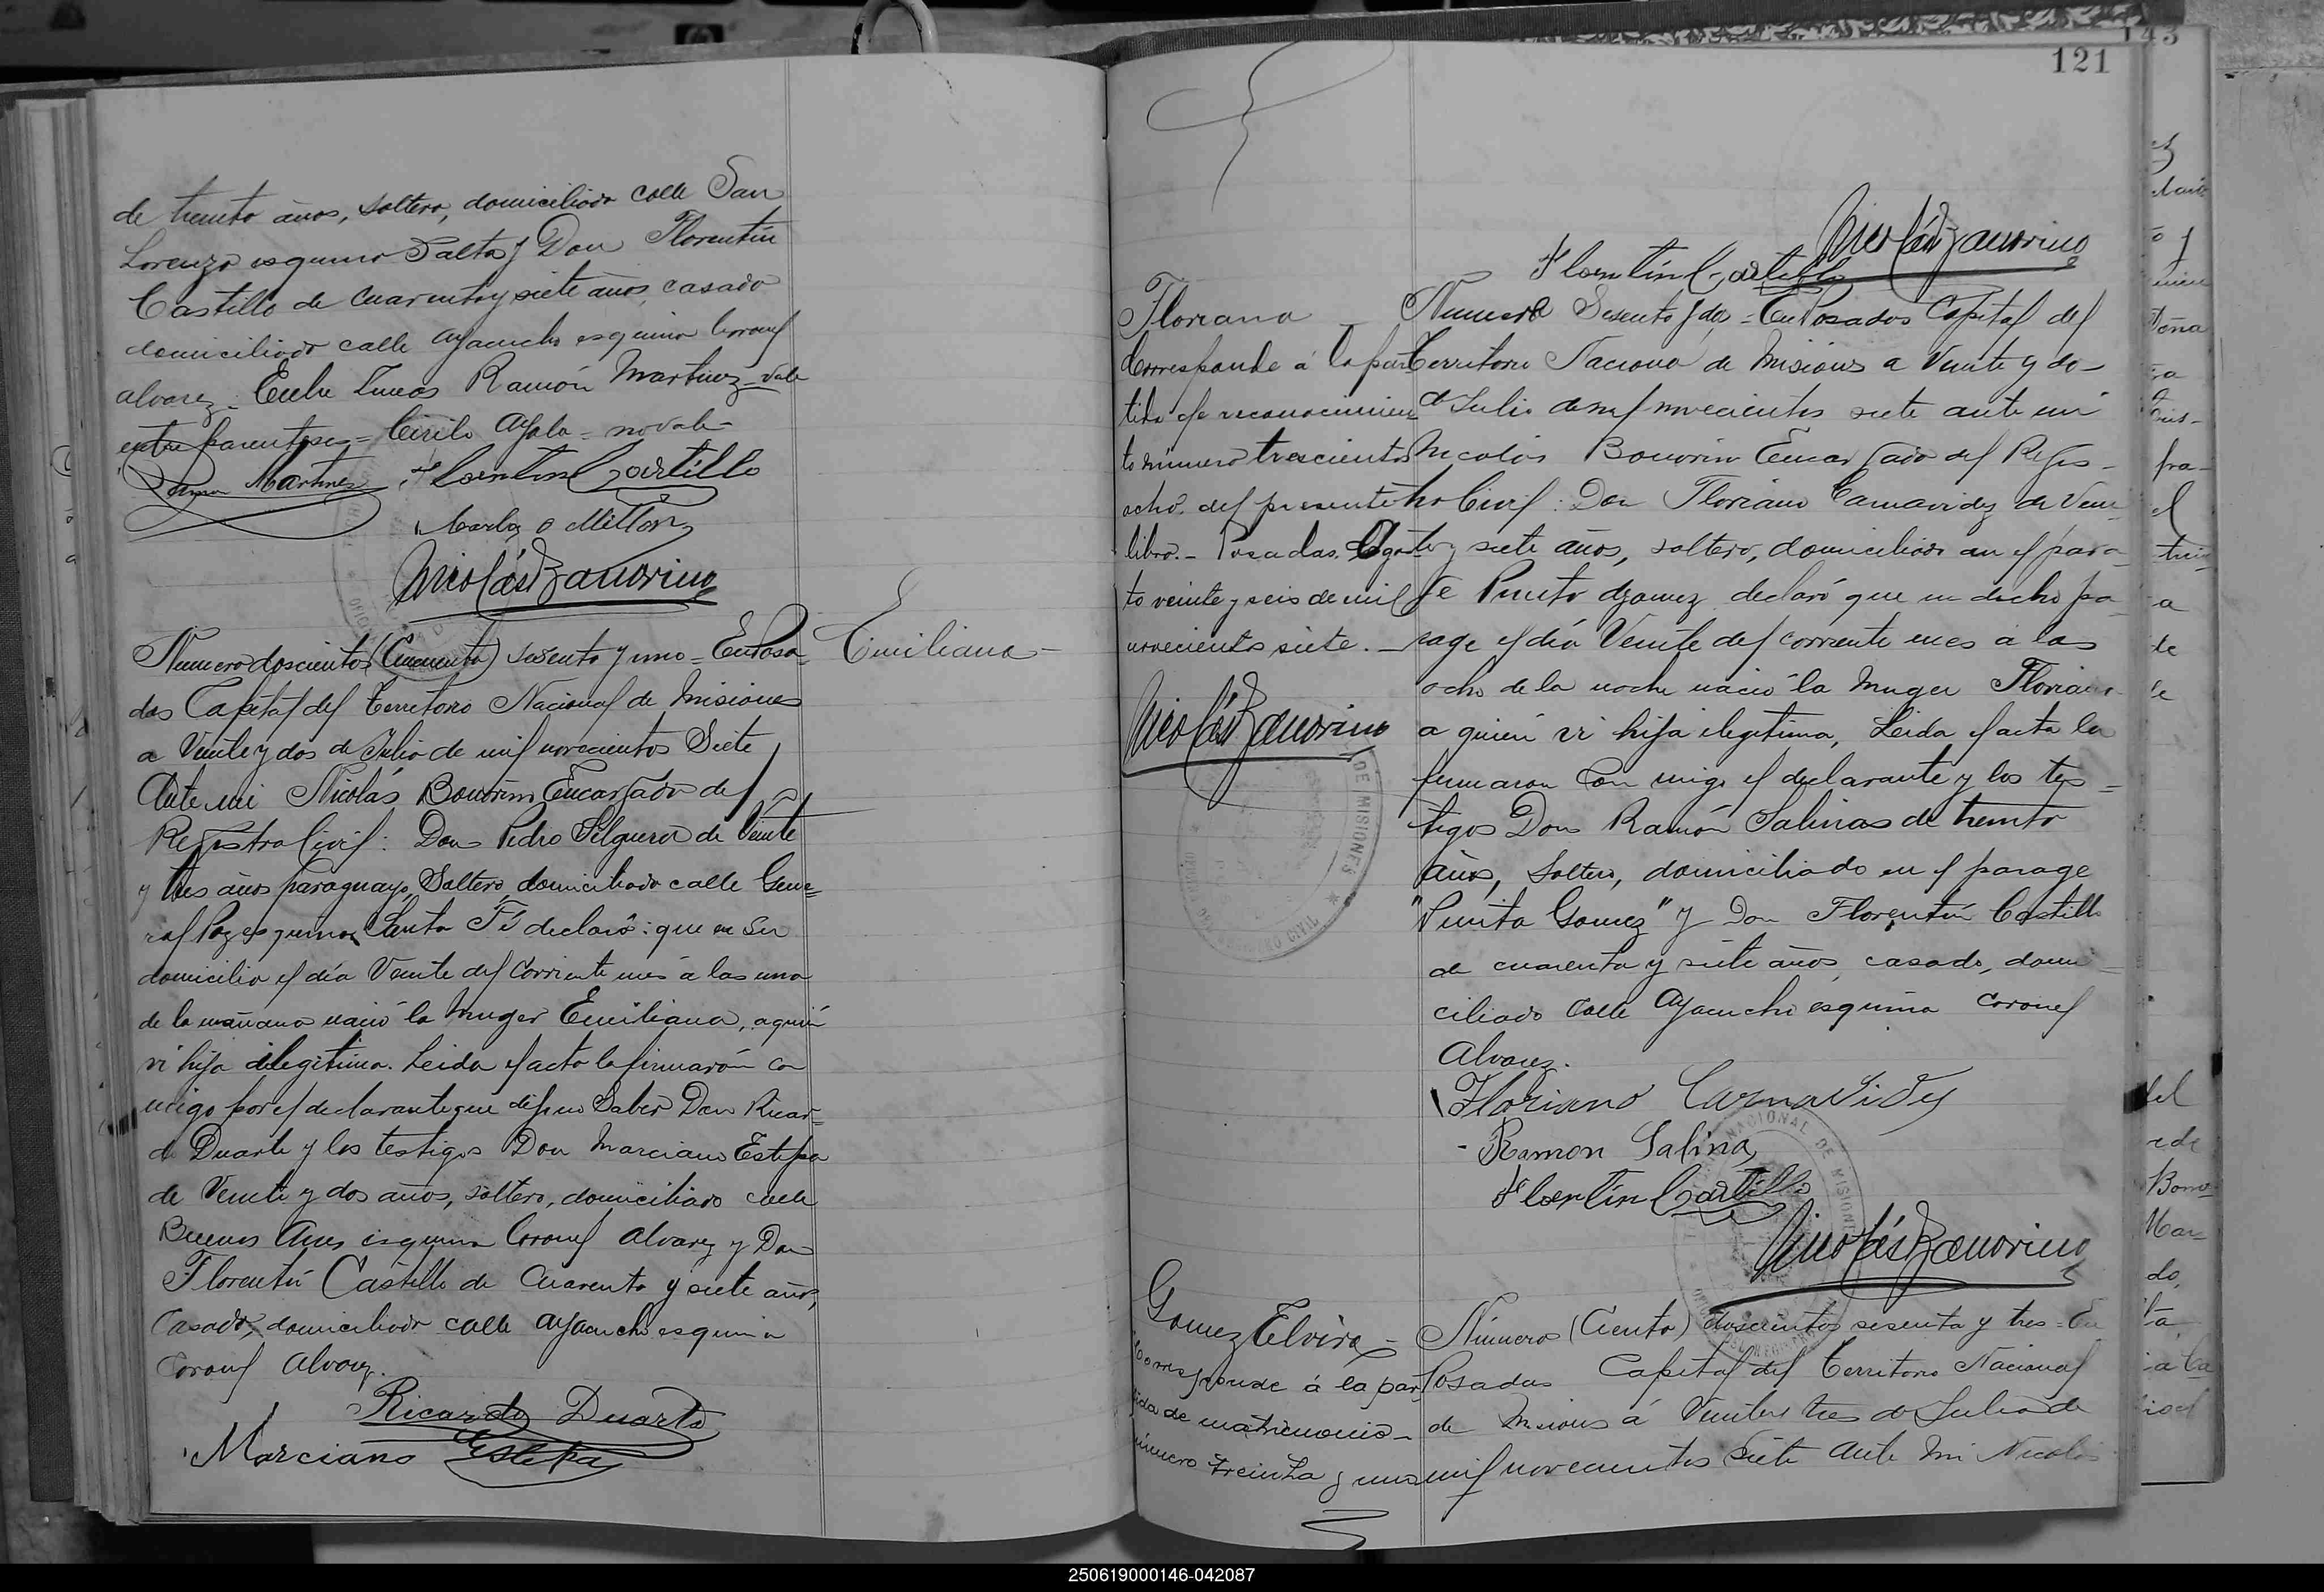 de treinta años, soltero, domiciliado calle San
Lorenzo esquina Salta y Don Florentín
Castillo de cuarenta y siete años, casado
domiciliado calle Ayacucho esquina Coronel
Alvarez - Entre lineas Ramón Martinez - Vale
entre parentesis = Cirilo Ayala = no vale -
Ramon Martinez Florentin Castillo
Carlos
Nicolás Bonorino
Numero doscientos (Cincuenta) sesenta y uno = En Posa
das Capital del Territorio Nacional de Misiones
a Veinte y dos de Julio de mil novecientos Siete
Ante mi Nicolás Bonorino Encargado del
Registro Civil: Don Pedro Silguero de Veinte
y tres años paraguayo, Soltero, domiciliado calle Gene=
ral Paz esquina Santa Fé declaró: que en su
domicilio el día Veinte del corriente mes á las una
de la mañana nació la muger Emiliana, a quién
vi hija ilegitima. Leida el acta la firmarón con
migo por el declarante que dijo no Saber Don Ricar=
do Duarte y los testigos Don Marciano Estepa
de Veinte y dos años, soltero, domiciliado calle
Buenos Aires esquina Coronel Alvarez y Don
Florentín Castillo de Cuarenta y siete años,
Casado, domiciliado calle Ayacucho esquina
Coronel Alvarez.
Ricardo Duarte
Marciano Estepa
Emiliana -
121
143
Nicolás Bonorino
Florentín Castillo
Floriana
Corresponde á la par
tida de reconocimien
to número trescientos
ocho del presente
libro. - Posadas, Agos
to veinte y seis de mil
novecientos siete. -
Nicolás Bonorino
Numero Sesenta y dos = En Posadas Capital del
Territorio Nacional de Misiones a Veinte y do-
de Julio de mil novecientos siete ante mi
Nicolás Bonorino Encargado del Regis-
tro Civil: Don Floriano Carnavides de Vein
te y siete años, soltero, domiciliado en el para
je Puerto Gomez declaró que en dicho pa
rage el día Veinte del corriente mes a las
ocho de la noche nació la muger Floriana
a quien vi hija ilegitima, Leida el acta la
firmaron con migo el declarante y los tes=
tigos Don Ramón Salinas de treinta
años, soltero, domiciliado en el parage
"Punta Gomez" y Don Florentín Castillo
de cuarenta y siete años, casado, domi
ciliado calle Ayacucho esquina Coronel
Alvarez.
Floriano Carnavides
Ramon Salina
Florentín Castillo
Nicolás Bonorino
Gomez Elvira -
Corresponde á la par
tida de matrimonio -
número treinta y uno
Número (Ciento) doscientos sesenta y tres = En
Posadas Capital del Territorio Nacional
de Misiones á Veinte y tres de Julio de
mil novecientos Siete Ante mi Nicolás
250619000146-042087